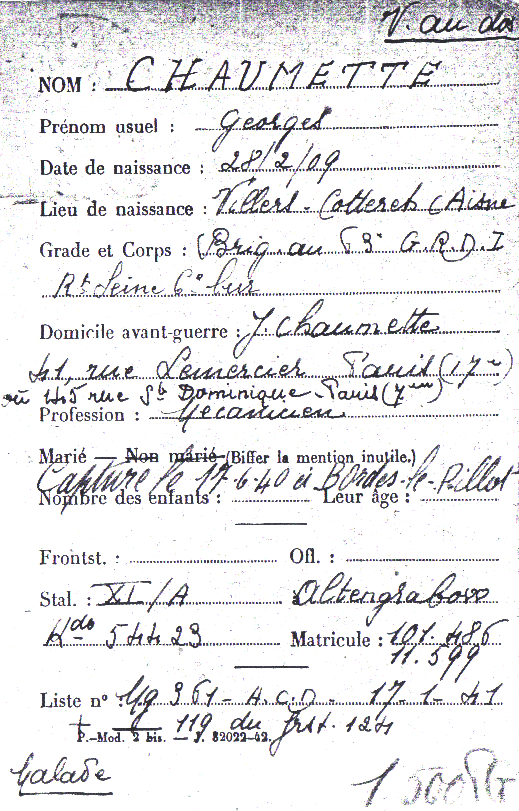 V. au dos
NOM : CHAUMETTE
Prénom usuel : Georges
Date de naissance : 28/2/09
Lieu de naissance : Villers-Cotterets (Aisne
Grade et Corps : Brig. au G.R.D.I
Rt Seine 6e bur
Domicile avant-guerre : J Chaumette
41, rue Lemercier Paris (17e)
ou 45 rue St Dominique-Paris (7em)
Profession : Mécanicien
Marié — Non marié (Biffer la mention inutile.)
Capturé le 17-6-40 à Bordes-le-Pillot
Nombre des enfants : Leur âge :
Frontst. : Ofl. :
Stal. : XI/A Altengrabow
Kdo 544 23 Matricule : 101.486
11.599
Liste n° : 361 - A.C.D - 17-1-41
119 du frst. 124
P.-Mod. 2 bis. — J. 82022-42.
Malade